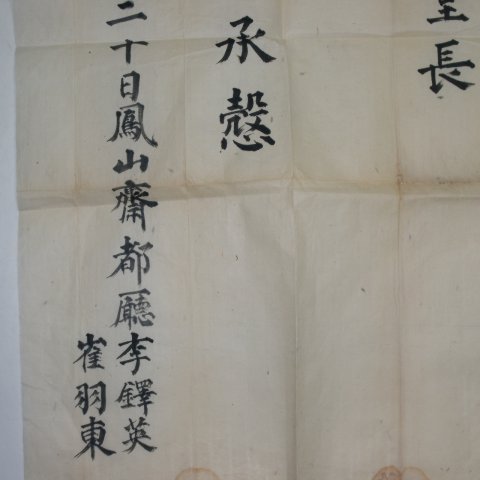 長
承慤
二十日鳳山齋都廳李鐸英
崔羽東